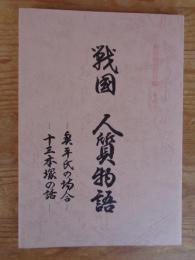 戦国 人質物語
―奥平氏の場合―
―十三本塚の話―